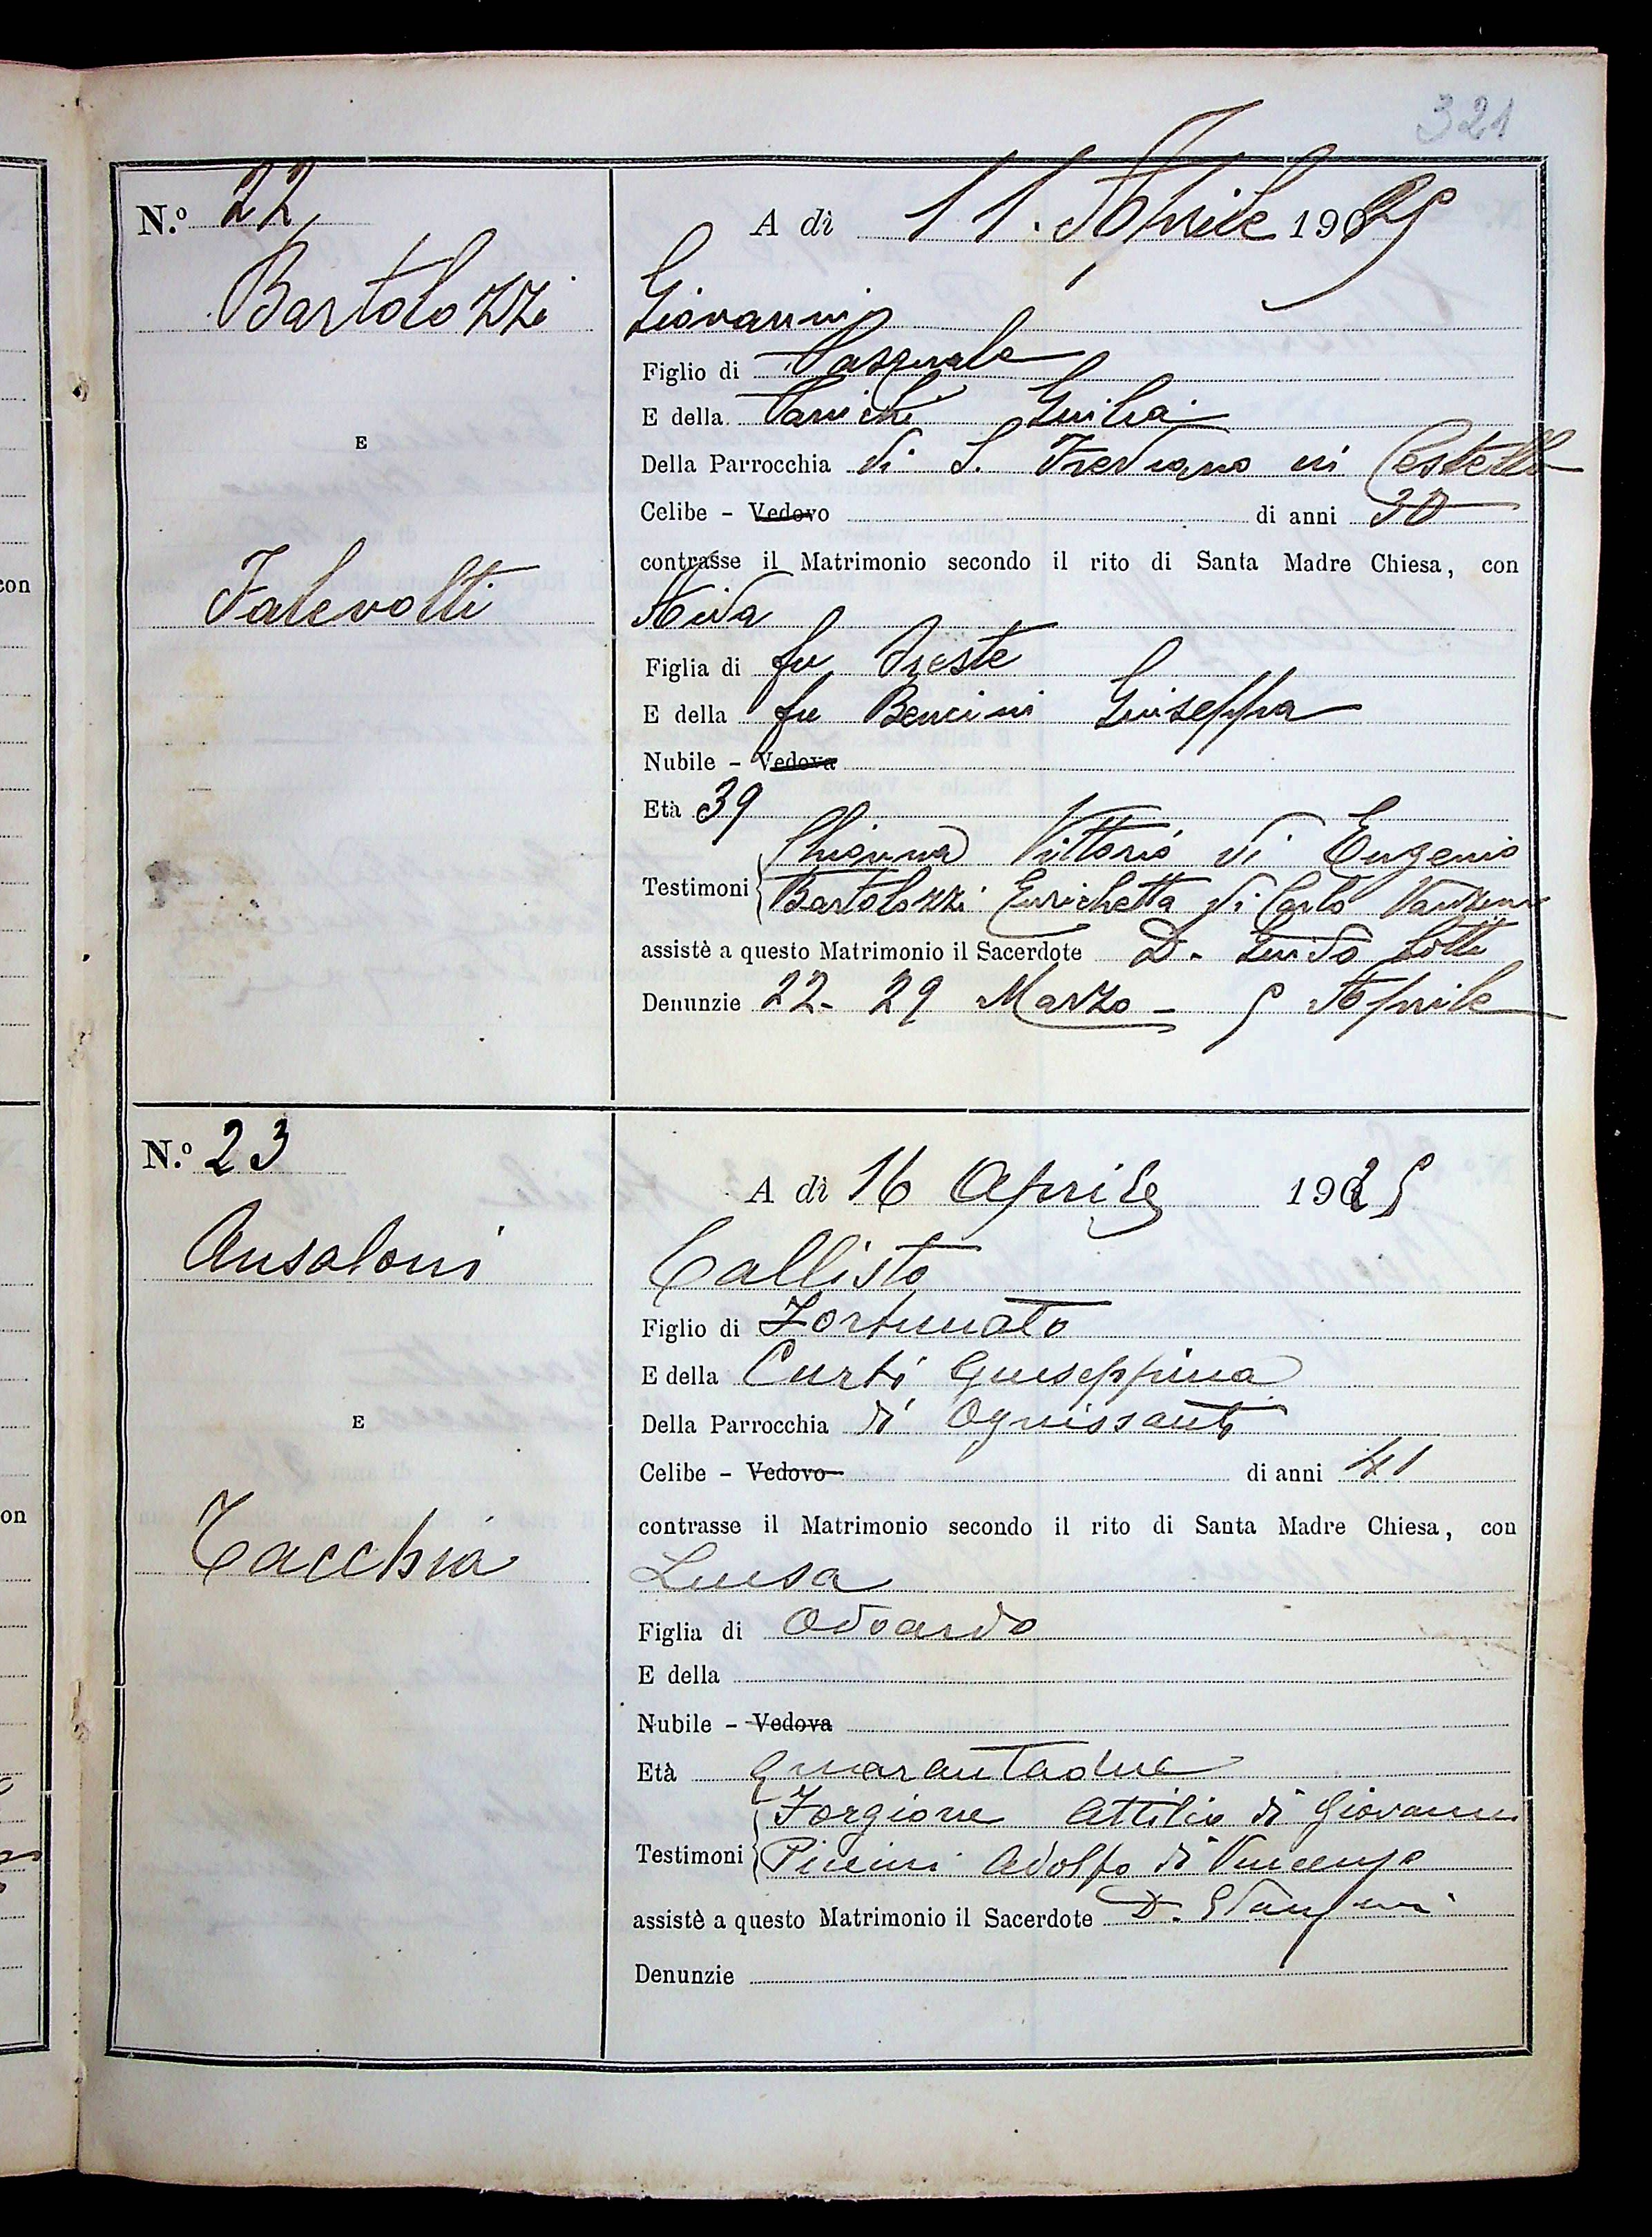 321
N.º 22
A dì 11. Aprile 1925
Bartolozzi
Giovanni
Figlio di Pasquale
E della Giulia
E
Della Parrocchia di S. Frediano in Cestello
Celibe - Vedovo di anni 30
contrasse il Matrimonio secondo il rito di Santa Madre Chiesa, con
Falevolti
Aida
Figlia di fu Oreste
E della fu Bencini Giuseppa
Nubile - Vedova
Età 39
Vittorio di Eugenio
Testimoni
Bartolozzi Enrichetta di Carlo
assistè a questo Matrimonio il Sacerdote D. Guido Lotti
Denunzie 22 - 29 Marzo - 5 Aprile
N.º 23
A dì 16 Aprile 1925
Ansaloni
Callisto
Figlio di Fortunato
E della Curti Giuseppina
E
Della Parrocchia di Ognissanti
Celibe - Vedovo di anni 41
contrasse il Matrimonio secondo il rito di Santa Madre Chiesa, con
Tacchia
Luisa
Figlia di Odoardo
E della
Nubile - Vedova
Età quarantadue
Forgione Attilio di Giovanni
Testimoni
Adolfo di Vincenzo
assistè a questo Matrimonio il Sacerdote D.
Denunzie
con
on